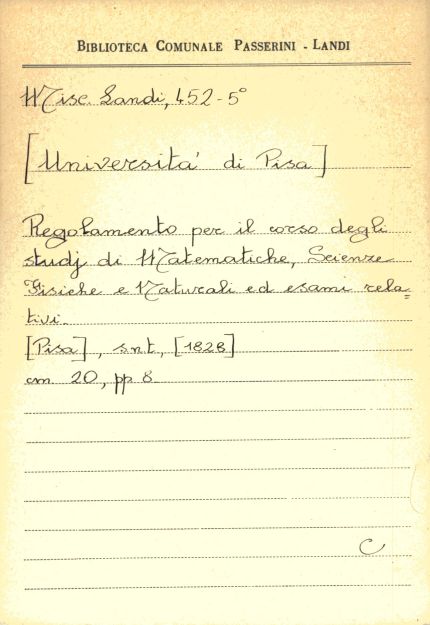 BIBLIOTECA COMUNALE PASSERINI - LANDI
Misc. Landi, 452-5°
[Università di Pisa]
Regolamento per il corso degli
studj di Matematiche, Scienze
Fisiche e Naturali ed esami rela=
tivi.
[Pisa], s.n.t, [1828]
cm. 20, pp 8.
C